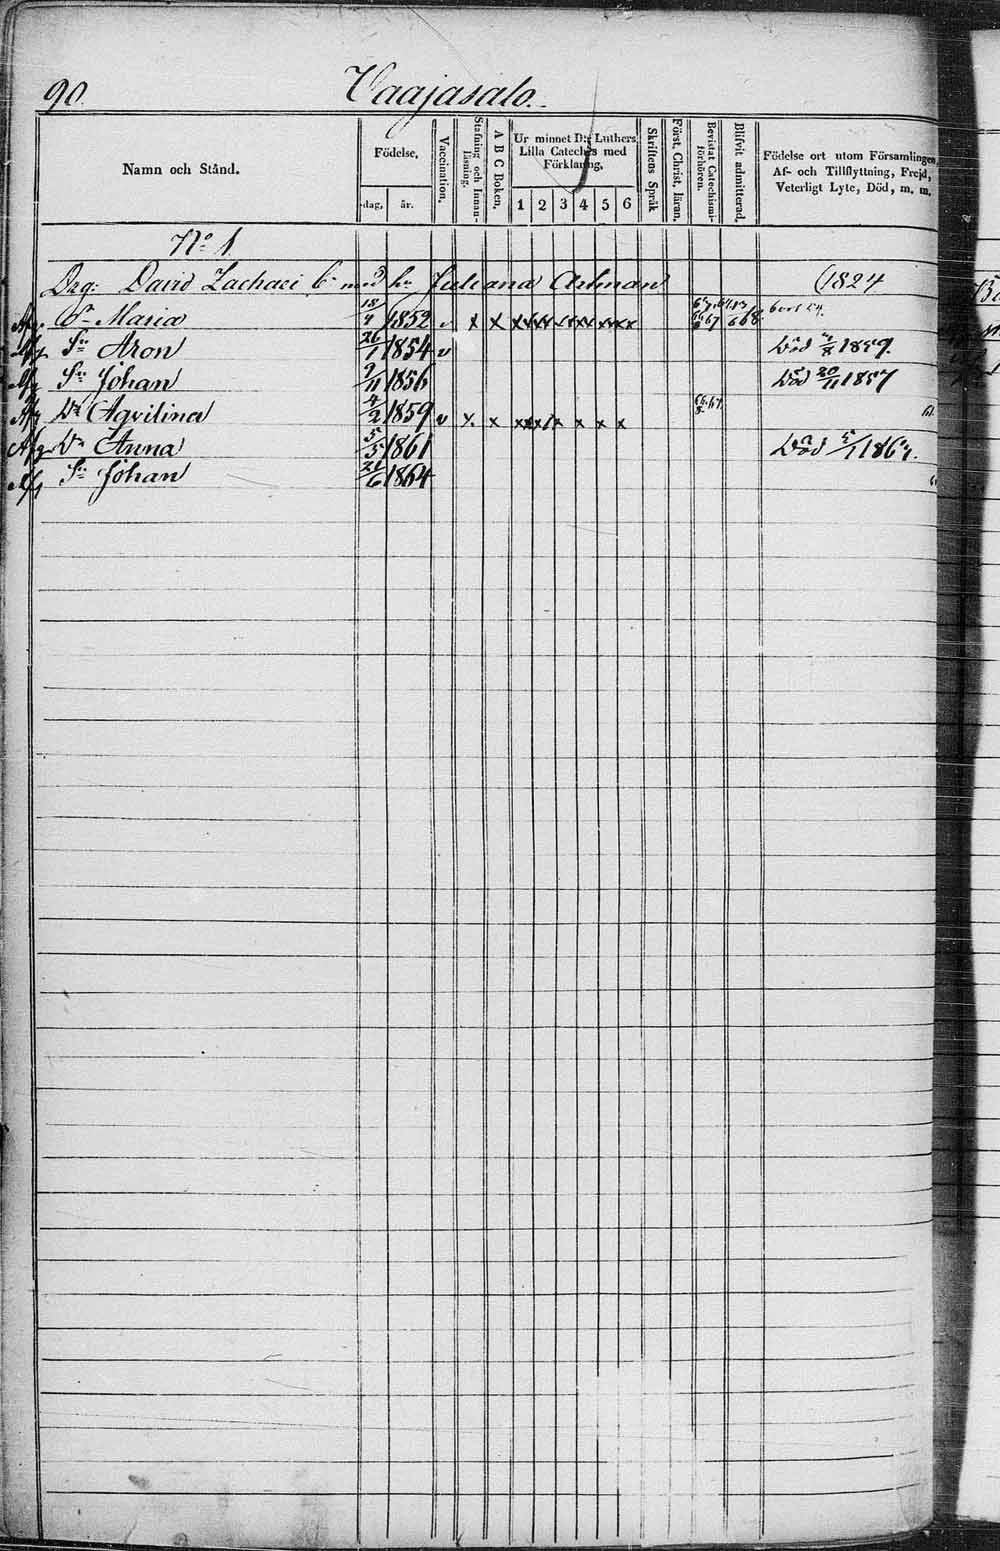 90. Vaajasalo.
Namn och Stånd.
Födelse,
dag, år.
Vaccination.
Stafning och Innanläsning.
A B C Boken.
Ur minnet D:r Luthers
Lilla Cateches med
Förklaring,
1 2 3 4 5 6
Skriftens Språk
Först. Christ. läran.
Bevistat Catechismiförhören.
Blifvit admitterad.
Födelse ort utom Församlingen,
Af- och Tillflyttning, Frejd,
Veterligt Lyte, Död, m. m.
No 1
David Zachaei med h: Juliana Artman (1824
Maria 18/4 1852 v x x 668
Sn Aron 26/1 1854 v Död 1859.
Sn Johan 9/11 1856 Död 20/11 1857
Dr Agvilina 4/2 1859 v x x x x x x
Dr Anna 5/5 1861 Död
Sn Johan 26/6 1864